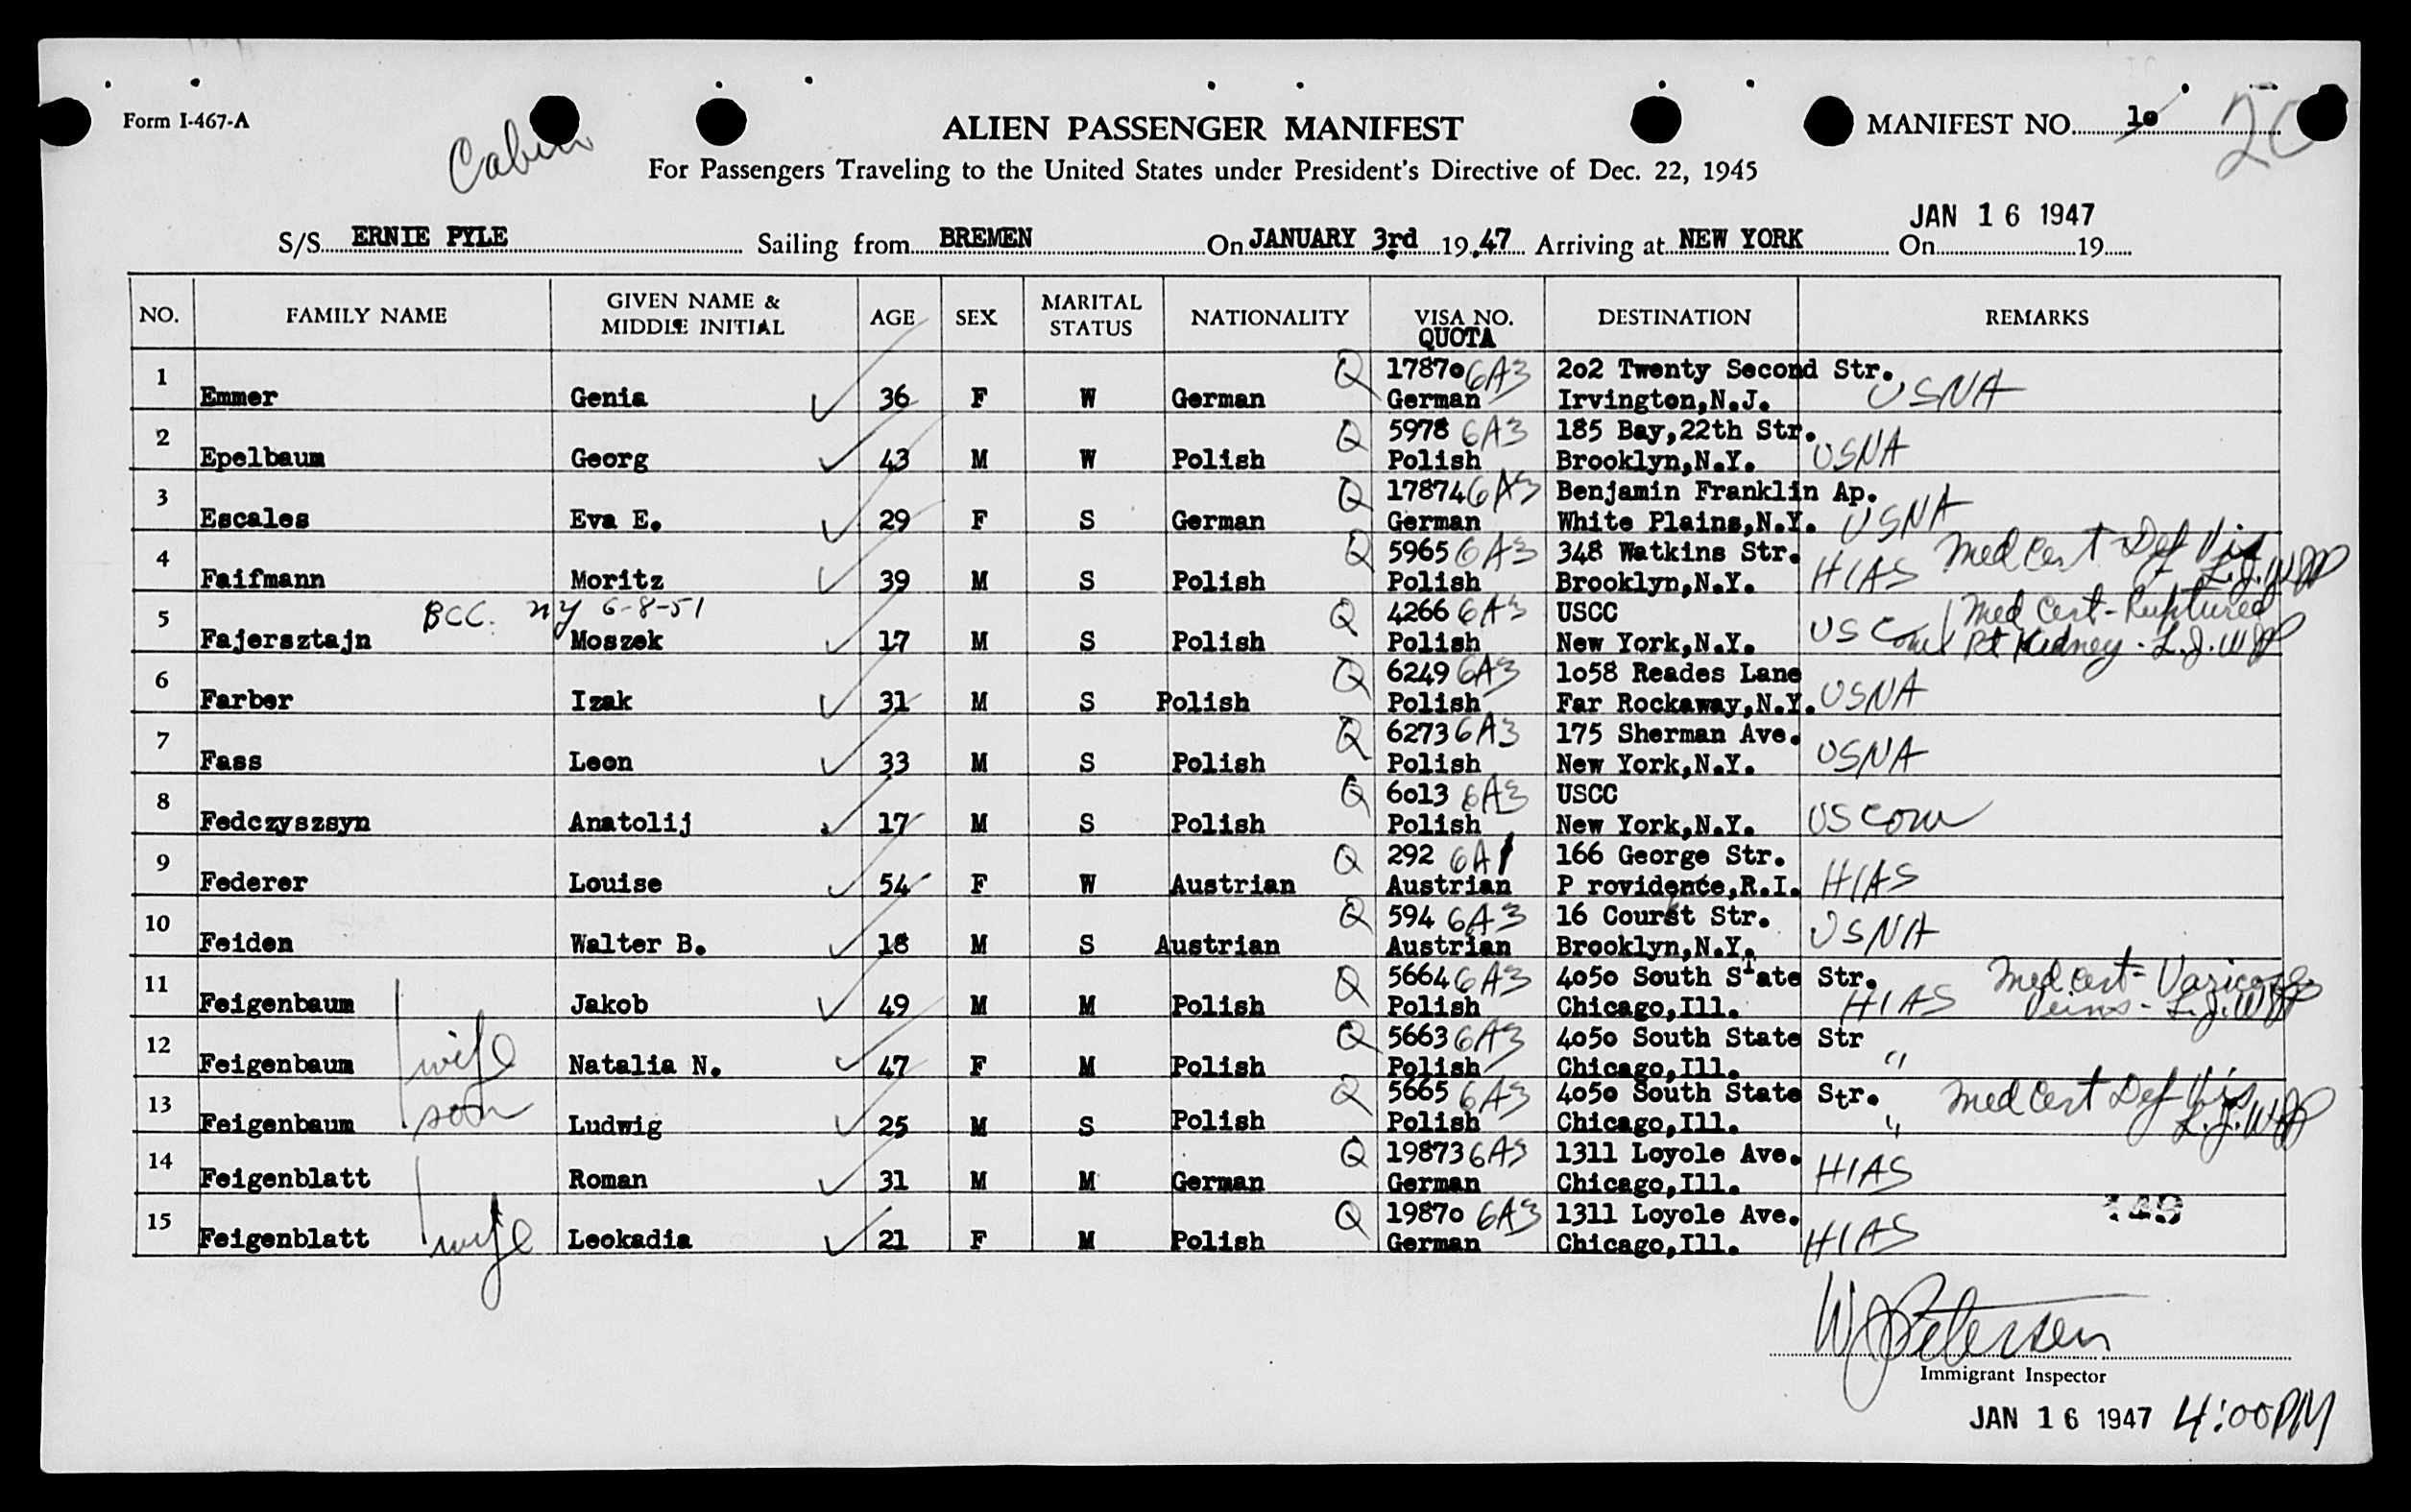 Form I-467-A
Cabin
ALIEN PASSENGER MANIFEST
MANIFEST NO. 10
For Passengers Traveling to the United States under President's Directive of Dec. 22, 1945
JAN 16 1947
S/S ERNIE PYLE Sailing from BREMEN On JANUARY 3rd 19.47 Arriving at NEW YORK On 19
NO. FAMILY NAME GIVEN NAME & MIDDLE INITIAL AGE SEX MARITAL STATUS NATIONALITY VISA NO. QUOTA DESTINATION REMARKS
Q 17870 6A3 202 Twenty Second Str.
1 Emmer Genia 36 F W German German Irvington,N.J. USNA
Q 5978 6A3 185 Bay,22th Str.
2 Epelbaum Georg 43 M W Polish Polish Brooklyn,N.Y. USNA
Q 17874 6A3 Benjamin Franklin Ap.
3 Escales Eva E. 29 F S German German White Plains,N.Y. USNA
Q 5965 6A3 348 Watkins Str. Med Cert Def Vis
4 Faifmann Moritz 39 M S Polish Polish Brooklyn,N.Y. HIAS L.J. WJP
BCC. NY 6-8-51 Q 4266 6A3 USCC Med Cert - Ruptured
5 Fajersztajn Moszek 17 M S Polish Polish New York,N.Y. US Com Rt Kidney - L.J. WJP
Q 6249 6A3 1058 Reades Lane
6 Farber Izak 31 M S Polish Polish Far Rockaway,N.Y. USNA
Q 6273 6A3 175 Sherman Ave.
7 Fass Leon 33 M S Polish Polish New York,N.Y. USNA
Q 6013 6A3 USCC
8 Fedczyszsyn Anatolij 17 M S Polish Polish New York,N.Y. US Com
Q 292 6A1 166 George Str.
9 Federer Louise 54 F W Austrian Austrian P rovidence,R.I. HIAS
Q 594 6A3 16 Courst Str.
10 Feiden Walter B. 18 M S Austrian Austrian Brooklyn,N.Y. USNA
Q 5664 6A3 4050 South State Str. Med Cert - Varicose
11 Feigenbaum Jakob 49 M M Polish Polish Chicago,Ill. HIAS Veins - L.J. WJP
Q 5663 6A3 4050 South State Str
12 Feigenbaum wife Natalia N. 47 F M Polish Polish Chicago,Ill. "
Q 5665 6A3 4050 South State Str. Med Cert Def Vis
13 Feigenbaum son Ludwig 25 M S Polish Polish Chicago,Ill. " L.J. WJP
Q 19873 6A3 1311 Loyole Ave.
14 Feigenblatt Roman 31 M M German German Chicago,Ill. HIAS
Q 19870 6A3 1311 Loyole Ave. 149
15 Feigenblatt wife Leokadia 21 F M Polish German Chicago,Ill. HIAS
WJPetersen
Immigrant Inspector
JAN 16 1947 4:00PM